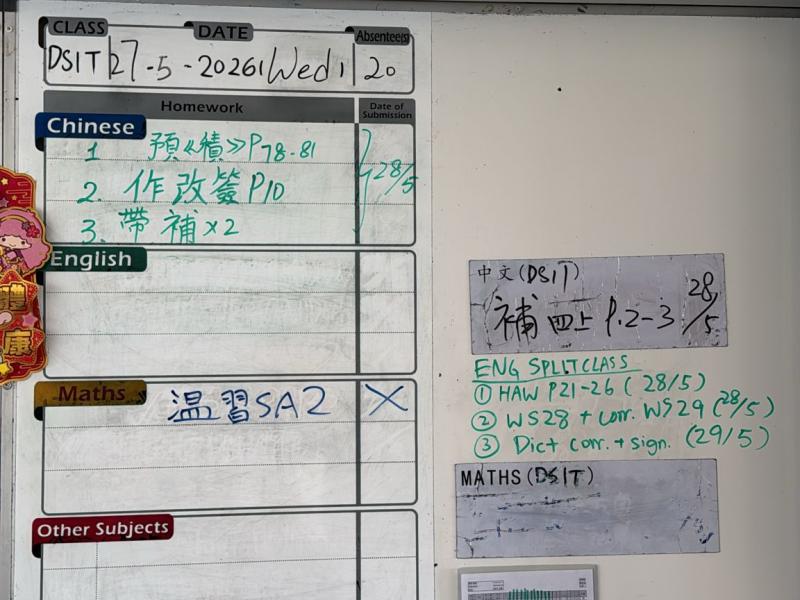 CLASS DATE Absentee(s)
DSIT 27-5-2026 Wed 20
Homework Date of Submission
Chinese
1 預《積》P78-81
2. 作改簽P10 28/5
3. 帶補x2
English
Maths 温習SA2 X
Other Subjects
中文(DSIT)
補四上 P.2-3 28/5
ENG SPLITCLASS
① HAW P21-26 (28/5)
② WS28 + corr. WS29 (28/5)
③ Dict corr. + sign. (29/5)
MATHS (DSIT)
體
康